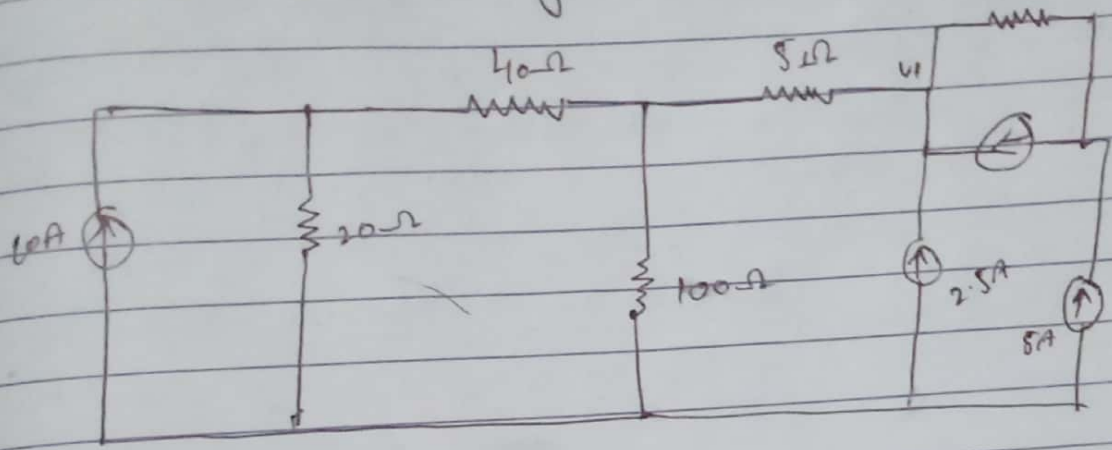 40Ω
5Ω
V1
10A
20Ω
100Ω
2.5A
5A